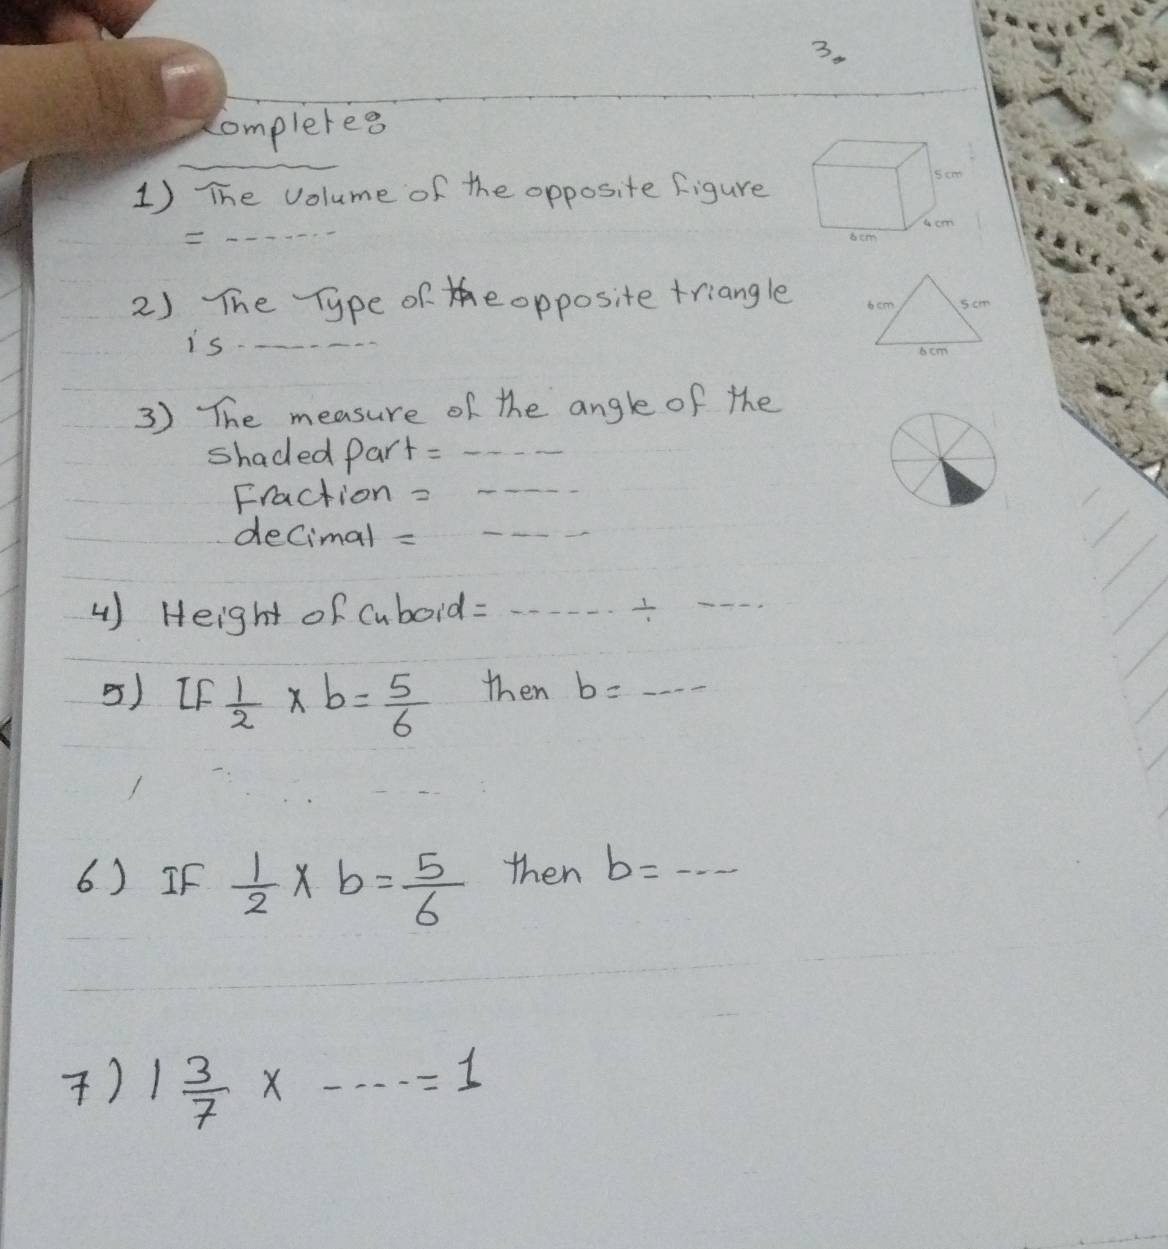 3.
complete:
1) The volume of the opposite figure
= -------
5 cm
4 cm
6 cm
2) The Type of the opposite triangle
is -------
6 cm
5 cm
6 cm
3) The measure of the angle of the
shaded part = ----
Fraction = -----
decimal = ----
4) Height of cuboid = ------ ÷ ----
5) If 1/2 × b = 5/6 then b = ----
6) IF 1/2 × b = 5/6 then b = ----
7) 1 3/7 × ---- = 1